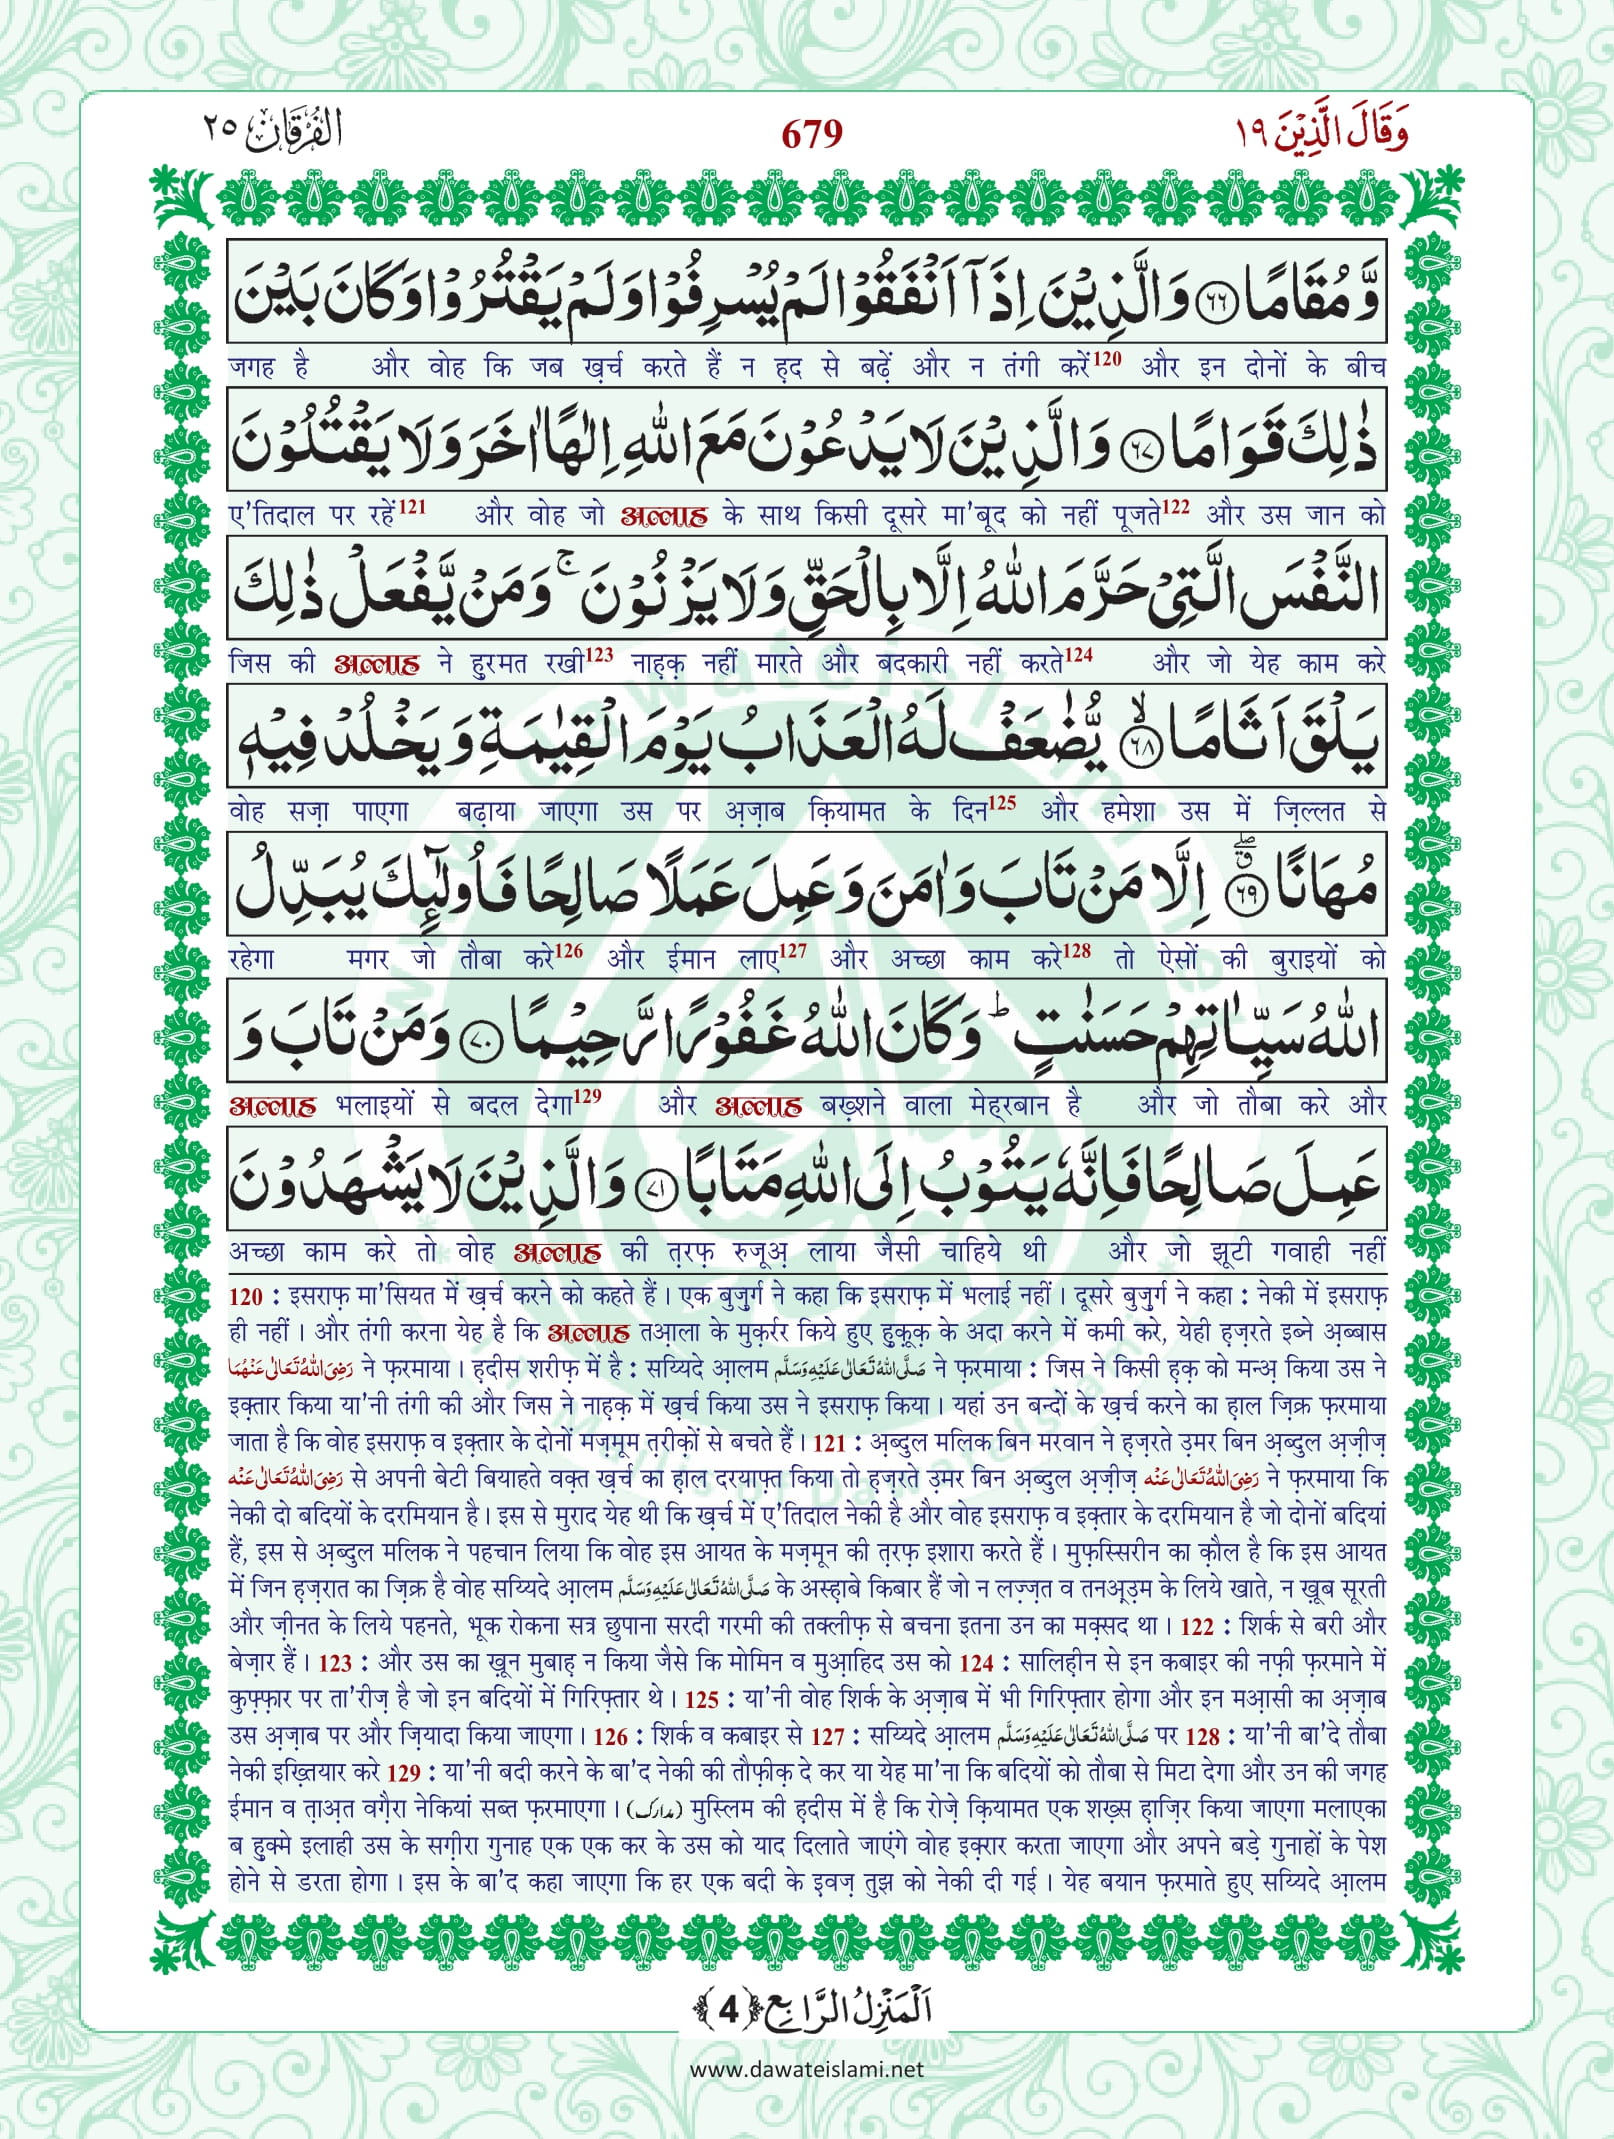 وَقَالَ الَّذِیْنَ ١٩ 679 الفُرْقَان ٢٥
وَّ مُقَامًا ﴿٦٦﴾ وَالَّذِیْنَ اِذَاۤ اَنْفَقُوْا لَمْ یُسْرِفُوْا وَ لَمْ یَقْتُرُوْا وَ كَانَ بَیْنَ
जगह है और वोह कि जब ख़र्च करते हैं न ह़द से बढ़ें और न तंगी करें120 और इन दोनों के बीच
ذٰلِكَ قَوَامًا ﴿٦٧﴾ وَ الَّذِیْنَ لَا یَدْعُوْنَ مَعَ اللّٰهِ اِلٰهًا اٰخَرَ وَ لَا یَقْتُلُوْنَ
ए'तिदाल पर रहें121 और वोह जो अल्लाह के साथ किसी दूसरे मा'बूद को नहीं पूजते122 और उस जान को
النَّفْسَ الَّتِیْ حَرَّمَ اللّٰهُ اِلَّا بِالْحَقِّ وَ لَا یَزْنُوْنَ ۚ وَ مَنْ یَّفْعَلْ ذٰلِكَ
जिस की अल्लाह ने ह़ुरमत रखी123 नाह़क़ नहीं मारते और बदकारी नहीं करते124 और जो येह काम करे
یَلْقَ اَثَامًا ﴿٦٨﴾ۙ یُّضٰعَفْ لَهُ الْعَذَابُ یَوْمَ الْقِیٰمَةِ وَ یَخْلُدْ فِیْهٖ
वोह सज़ा पाएगा बढ़ाया जाएगा उस पर अ़ज़ाब क़ियामत के दिन125 और हमेशा उस में ज़िल्लत से
مُهَانًا ﴿٦٩﴾ۗۖ اِلَّا مَنْ تَابَ وَ اٰمَنَ وَ عَمِلَ عَمَلًا صَالِحًا فَاُولٰٓىِٕكَ یُبَدِّلُ
रहेगा मगर जो तौबा करे126 और ईमान लाए127 और अच्छा काम करे128 तो ऐसों की बुराइयों को
اللّٰهُ سَیِّاٰتِهِمْ حَسَنٰتٍ ؕ وَ كَانَ اللّٰهُ غَفُوْرًا رَّحِیْمًا ﴿٧٠﴾ وَ مَنْ تَابَ وَ
अल्लाह भलाइयों से बदल देगा129 और अल्लाह बख़्शने वाला मेह्‌रबान है और जो तौबा करे और
عَمِلَ صَالِحًا فَاِنَّهٗ یَتُوْبُ اِلَى اللّٰهِ مَتَابًا ﴿٧١﴾ وَ الَّذِیْنَ لَا یَشْهَدُوْنَ
अच्छा काम करे तो वोह अल्लाह की त़रफ़ रुजूअ़ लाया जैसी चाहिये थी और जो झूटी गवाही नहीं
120 : इसराफ़ मा'सियत में ख़र्च करने को कहते हैं। एक बुज़ुर्ग ने कहा कि इसराफ़ में भलाई नहीं। दूसरे बुज़ुर्ग ने कहा : नेकी में इसराफ़
ही नहीं। और तंगी करना येह है कि अल्लाह तआ़ला के मुक़र्रर किये हुए ह़ुक़ूक़ के अदा करने में कमी करे, येही ह़ज़रते इब्ने अ़ब्बास
رَضِیَ اللّٰهُ تَعَالٰی عَنْهُمَا ने फ़रमाया। ह़दीस शरीफ़ में है : सय्यिदे आ़लम صَلَّی اللّٰهُ تَعَالٰی عَلَیْهِ وَسَلَّم ने फ़रमाया : जिस ने किसी ह़क़ को मन्अ़ किया उस ने
इक़्तार किया या'नी तंगी की और जिस ने नाह़क़ में ख़र्च किया उस ने इसराफ़ किया। यहां उन बन्दों के ख़र्च करने का हाल ज़िक्र फ़रमाया
जाता है कि वोह इसराफ़ व इक़्तार के दोनों मज़्मूम त़रीक़ों से बचते हैं। 121 : अ़ब्दुल मलिक बिन मरवान ने ह़ज़रते उ़मर बिन अ़ब्दुल अ़ज़ीज़
رَضِیَ اللّٰهُ تَعَالٰی عَنْه से अपनी बेटी बियाहते वक़्त ख़र्च का ह़ाल दरयाफ़्त किया तो ह़ज़रते उ़मर बिन अ़ब्दुल अ़ज़ीज़ رَضِیَ اللّٰهُ تَعَالٰی عَنْه ने फ़रमाया कि
नेकी दो बदियों के दरमियान है। इस से मुराद येह थी कि ख़र्च में ए'तिदाल नेकी है और वोह इसराफ़ व इक़्तार के दरमियान है जो दोनों बदियां
हैं, इस से अ़ब्दुल मलिक ने पहचान लिया कि वोह इस आयत के मज़्मून की त़रफ़ इशारा करते हैं। मुफ़स्सिरीन का क़ौल है कि इस आयत
में जिन ह़ज़रात का ज़िक्र है वोह सय्यिदे आ़लम صَلَّی اللّٰهُ تَعَالٰی عَلَیْهِ وَسَلَّم के अस्ह़ाबे किबार हैं जो न लज़्ज़त व तनअ़्उ़म के लिये खाते, न ख़ूब सूरती
और ज़ीनत के लिये पहनते, भूक रोकना सत्र छुपाना सरदी गरमी की तक्लीफ़ से बचना इतना उन का मक़्सद था। 122 : शिर्क से बरी और
बेज़ार हैं। 123 : और उस का ख़ून मुबाह़ न किया जैसे कि मोमिन व मुआ़हिद उस को 124 : सालिह़ीन से इन कबाइर की नफ़ी फ़रमाने में
कुफ़्फ़ार पर ता'रीज़ है जो इन बदियों में गिरिफ़्तार थे। 125 : या'नी वोह शिर्क के अ़ज़ाब में भी गिरिफ़्तार होगा और इन मआ़सी का अ़ज़ाब
उस अ़ज़ाब पर और ज़ियादा किया जाएगा। 126 : शिर्क व कबाइर से 127 : सय्यिदे आ़लम صَلَّی اللّٰهُ تَعَالٰی عَلَیْهِ وَسَلَّم पर 128 : या'नी बा'दे तौबा
नेकी इख़्तियार करे 129 : या'नी बदी करने के बा'द नेकी की तौफ़ीक़ दे कर या येह मा'ना कि बदियों को तौबा से मिटा देगा और उन की जगह
ईमान व त़ाअ़त वग़ैरा नेकियां सब्त फ़रमाएगा। (مدارک) मुस्लिम की ह़दीस में है कि रोज़े क़ियामत एक शख़्स ह़ाज़िर किया जाएगा मलाएका
ब हुक्मे इलाही उस के सग़ीरा गुनाह एक एक कर के उस को याद दिलाते जाएंगे वोह इक़्रार करता जाएगा और अपने बड़े गुनाहों के पेश
होने से डरता होगा। इस के बा'द कहा जाएगा कि हर एक बदी के इ़वज़ तुझ को नेकी दी गई। येह बयान फ़रमाते हुए सय्यिदे आ़लम
اَلْمَنْزِلُ الرَّابِع ﴿4﴾
www.dawateislami.net